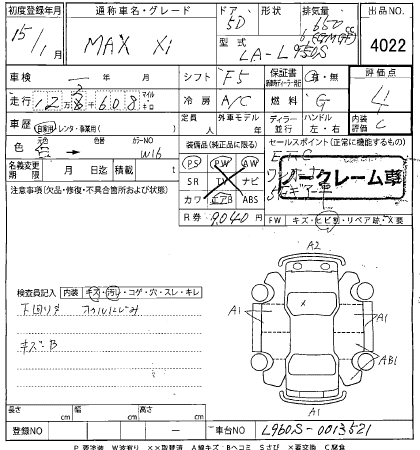 初度登録年月 通称車名・グレード ドア 形状 排気量 出品NO.
15/1月 MAX Xi 5D 650 4022
型式 LA-L950S
車検 年 月 シフト F5 保証書 有・無 評価点
走行 12万8608 マイル キロ 冷房 A/C 燃料 G 4
車歴 自家用・レンタ・事業用( ) 定員 人 外車モデル 年 ディーラー 並行 ハンドル 左・右 内装評価 C
色 色替 カラーNO W16
名義変更期限 月 日迄 積載量 t
装備品(純正品に限る) セールスポイント(正常に機能するもの)
PS PW AW ETC
SR TV ナビ
カワ エアB ABS
ノークレーム車
R券 9040円 FW キズ・ヒビ割・リペア跡・X要
注意事項(欠品・修復・不具合箇所および状態)
A2
検査員記入 内装 キズ・汚れ・コゲ・穴・スレ・キレ
下回りサ オイルにじみ
キズ・B
A1 A1
AB1
A1
長さ cm 幅 cm 高さ cm
登録NO 車台NO L950S-0013521
P要塗装 W波有り ××取替済 A線キズ・Bヘコミ Sさび ×要交換 C腐食